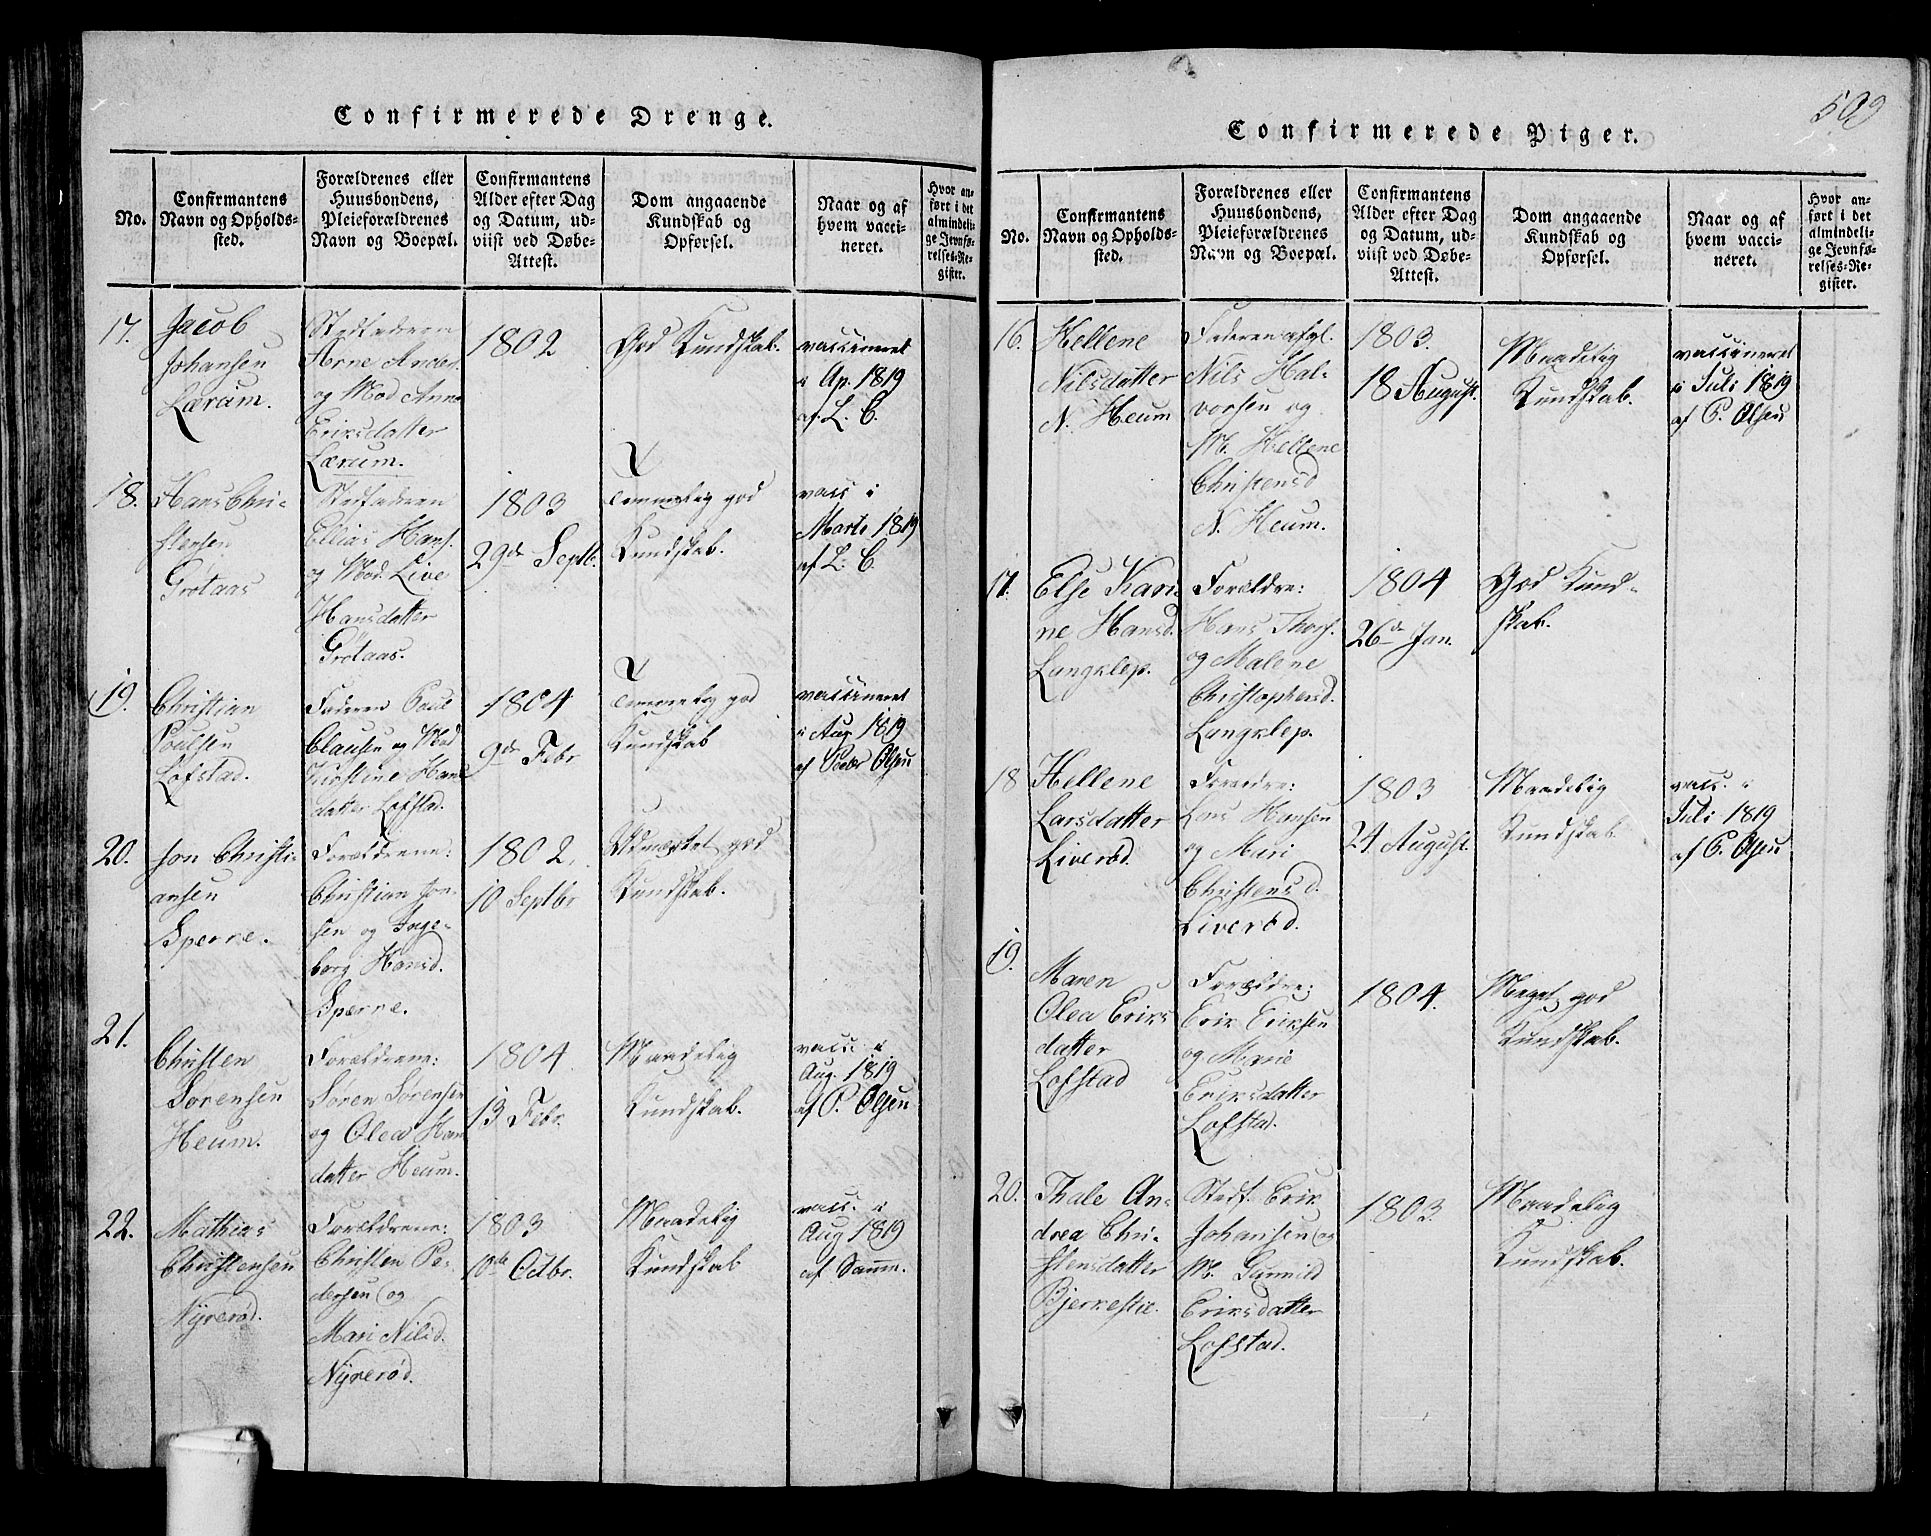 Confirmerede Drenge.
No.
Confirmantens
Navn og Opholds-
sted.
Forældrenes eller
Huusbondens,
Pleieforældrenes
Navn og Boepæl.
Confirmantens
Alder efter Dag
og Datum, ud-
viist ved Døbe-
Attest.
Dom angaaende
Kundskab og
Opførsel.
Naar og af
hvem vacci-
neret.
Hvor an-
ført i det
almindeli-
ge Jevnfø-
relses-Re-
gister.
17.
Jacob
Johansen
Lærum.
Stedfaderen
Arne Anders.
og Mod Anne
Eriksdatter
Lærum.
1802
God Kundskab.
vaccineret
i Ap. 1819
af L. C.
18.
Hans Chri-
stensen
Grøtaas
Stedfaderen
Ellias Hans.
og Mod. Live
Hansdatter
Grøtaas.
1803
29de Septb.
Temmelig god
Kundskab.
vacc i
Marts 1819
af L. C.
19.
Christian
Poulsen
Lofstad.
Faderen Poul
Clausen og Mod
Kirstine Hans
datter Lofstad.
1804
9de Febr
Temmelig god
Kundskab
vaccineret
i Aug 1819
af Peder Olsen
20.
Jon Christi-
ansen
Sperre.
Forældrene:
Christian Jon-
sen og Inge-
borg Hansd.
Sperre.
1802.
10 Septbr
Udmærket god
Kundskab.
21.
Christen
Sørensen
Heum.
Forældrene:
Søren Sørensen
og Olea Han
datter Heum.
1804
13 Febr.
Maadelig
Kundskab.
vacc. i
Aug. 1819
af P. Olsen
22.
Mathias
Christensen
Nyrerød.
Forældrene:
Christen Pe-
dersen og
Mari Nilsd.
Nyrerød.
1803
10de Octbr.
Maadelig
Kundskab
vacc. i
Aug 1819
af Samme.
509
Confirmerede Piger.
No.
Confirmantens
Navn og Opholds-
sted.
Forældrenes eller
Huusbondens,
Pleieforældrenes
Navn og Boepæl.
Confirmantens
Alder efter Dag
og Datum, ud-
viist ved Døbe-
Attest.
Dom angaaende
Kundskab og
Opførsel.
Naar og af
hvem vacci-
neret.
Hvor an-
ført i det
almindeli-
ge Jevnfø-
relses-Re-
gister.
16.
Hellene
Nilsdatter
N. Heum
Faderen afgl.
Nils Hal-
vorsen og
M. Hellene
Christensd
N. Heum.
1803.
18 August.
Maadelig
Kundskab.
vaccineret
i Juli 1819
af P. Olsen
17.
Else Kari-
ne Hansd.
Langslep.
Forældre:
Hans Thors.
og Malene
Christophersd.
Langslep.
1804
26de Jan.
God Kund-
skab.
18
Hellene
Larsdatter
Liverød.
Forældre:
Lars Hansen
og Mari
Christensd.
Liverød.
1803
24 August.
Maadelig
Kundskab.
vacc. i
Juli 1819
af P. Olsen
19.
Maren
Olea Eriks
datter
Lofstad
Forældre:
Erik Eriksen
og Marie
Eriksdatter
Lofstad.
1804.
Meget god
Kundskab.
20.
Thale An-
drea Chri-
stensdatter
Bjerkestie.
Stedf. Erik
Johansen og
M. Gunnild
Eriksdatter
Lofstad.
1803.
Maadelig
Kundskab.